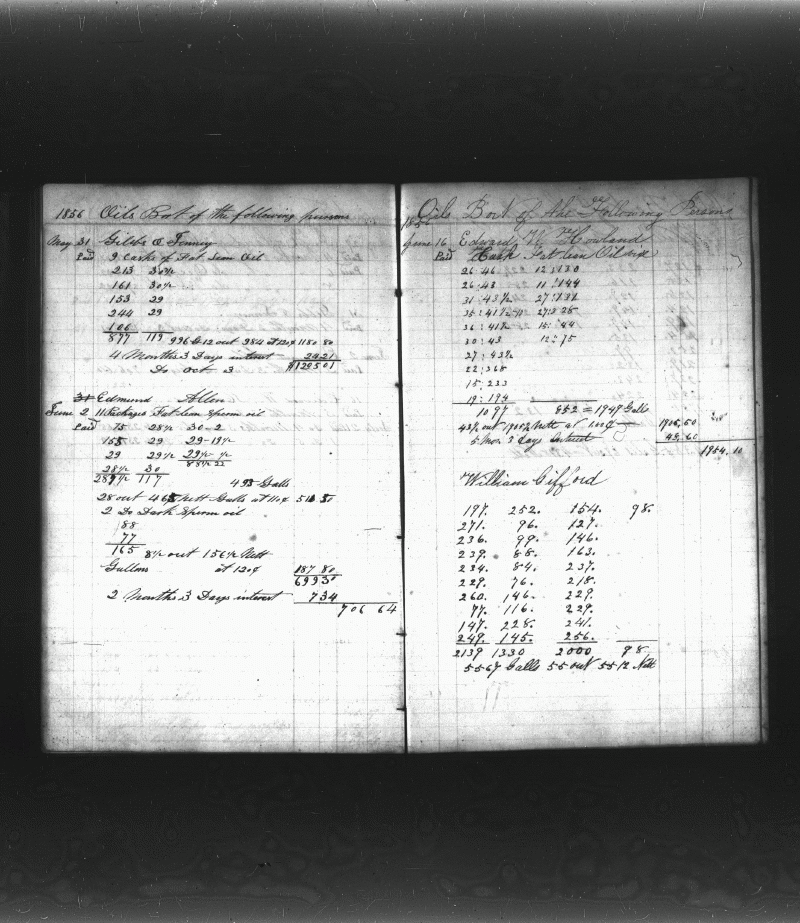 1856 Oils Bort of the following persons
May 31 Gibbs & Jenney
Paid 9 Casks of Fat Lem Oil
213 30½
161 30½
153 29
244 29
106
877 119 996 G 12 out 984 at 120¢ 1180 80
4 Months 3 Days interest 24 21
Do Oct 3 $1205 01
31 Edmund Allen
June 2 11 Packages Fat Lem Sperm oil
Paid 75 28½ 30-2
155 29 29-19½
29 29½ 29½ ½
28½ 30 88½ 22
287½ 117 493 Galls
28 out 465 Nett Galls at 110¢ 511 50
2 Do Dark Sperm oil
88
77
165 8½ out 156½ Nett
Gallons at 120¢ 187 80
699 30
2 Months 3 Days interest 7 34
706 64
Oils Bort of the Following Persons
1856
June 16 Edward W Howland
Paid Cash Fat Lem Oil
26:46 12:130
26:43 11:144
31:43½ 27:131
35:41½ 27:328
36:41½ 15:44
30:43 12:75
27:43½
22:368
15:233
19:194
1097 852 = 1949 Galls
43½ out 1905½ Nett at 100¢ 1905,50
5 Mos 3 days Interest 48,60
1954.10
William Gifford
197. 252. 154. 98.
271. 96. 127.
236. 99. 146.
239. 88. 163.
234. 84. 237.
229. 76. 218.
260. 146. 229.
77. 116. 229.
147. 228. 241.
249. 145. 256.
2139 1330 2000 98.
5567 Galls 55 out 5512 Nett